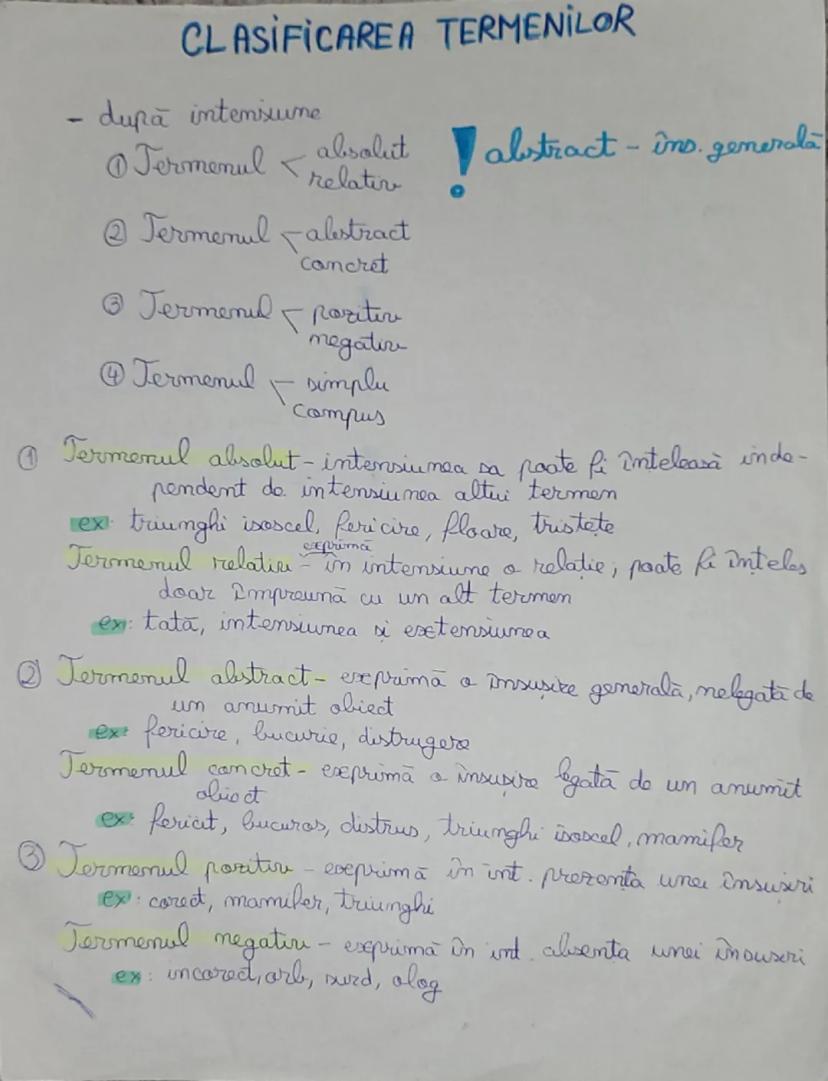 CLASIFICAREA TERMENILOR
- după intensiune
① Termenul < absolut
relativ
! abstract - îns. generală
② Termenul < abstract
concret
③ Termenul < pozitiv
negativ
④ Termenul < simplu
compus
① Termenul absolut - intensiunea sa poate fi înteleasă inde-
pendent de intensiunea altui termen
ex: triunghi isoscel, fericire, floare, tristețe
exprimă
Termenul relativ - în intensiune o relație, poate fi înteles
doar împreună cu un alt termen
ex: tată, intensiunea și extensiunea
② Termenul abstract - exprimă o însușire generală, nelegată de
un anumit obiect
ex: fericire, bucurie, distrugere
Termenul concret - exprimă o însușire legată de un anumit
obiect
ex: fericit, bucuros, distrus, triunghi isoscel, mamifer
③ Termenul pozitiv - exprimă în int. prezența unei însușiri
ex: corect, mamifer, triunghi
Termenul negativ - exprimă în int. absența unei însușiri
ex: incorect, orb, surd, olog